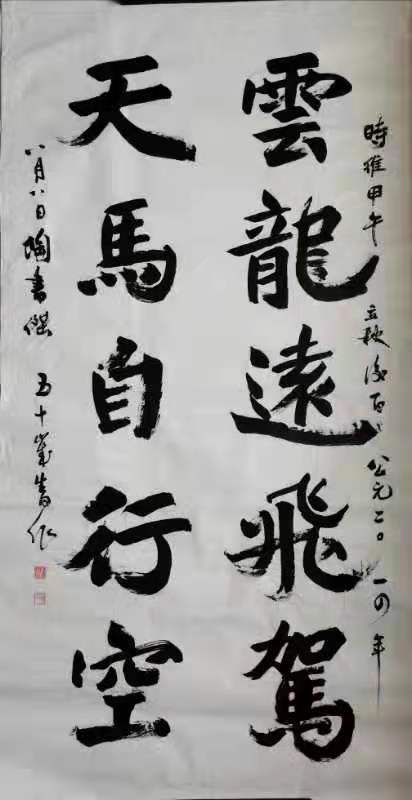 時維甲午 立秋後一日 公元二〇一四年
雲龍遠飛駕
天馬自行空
八月八日 陶書傑 五十歲書作